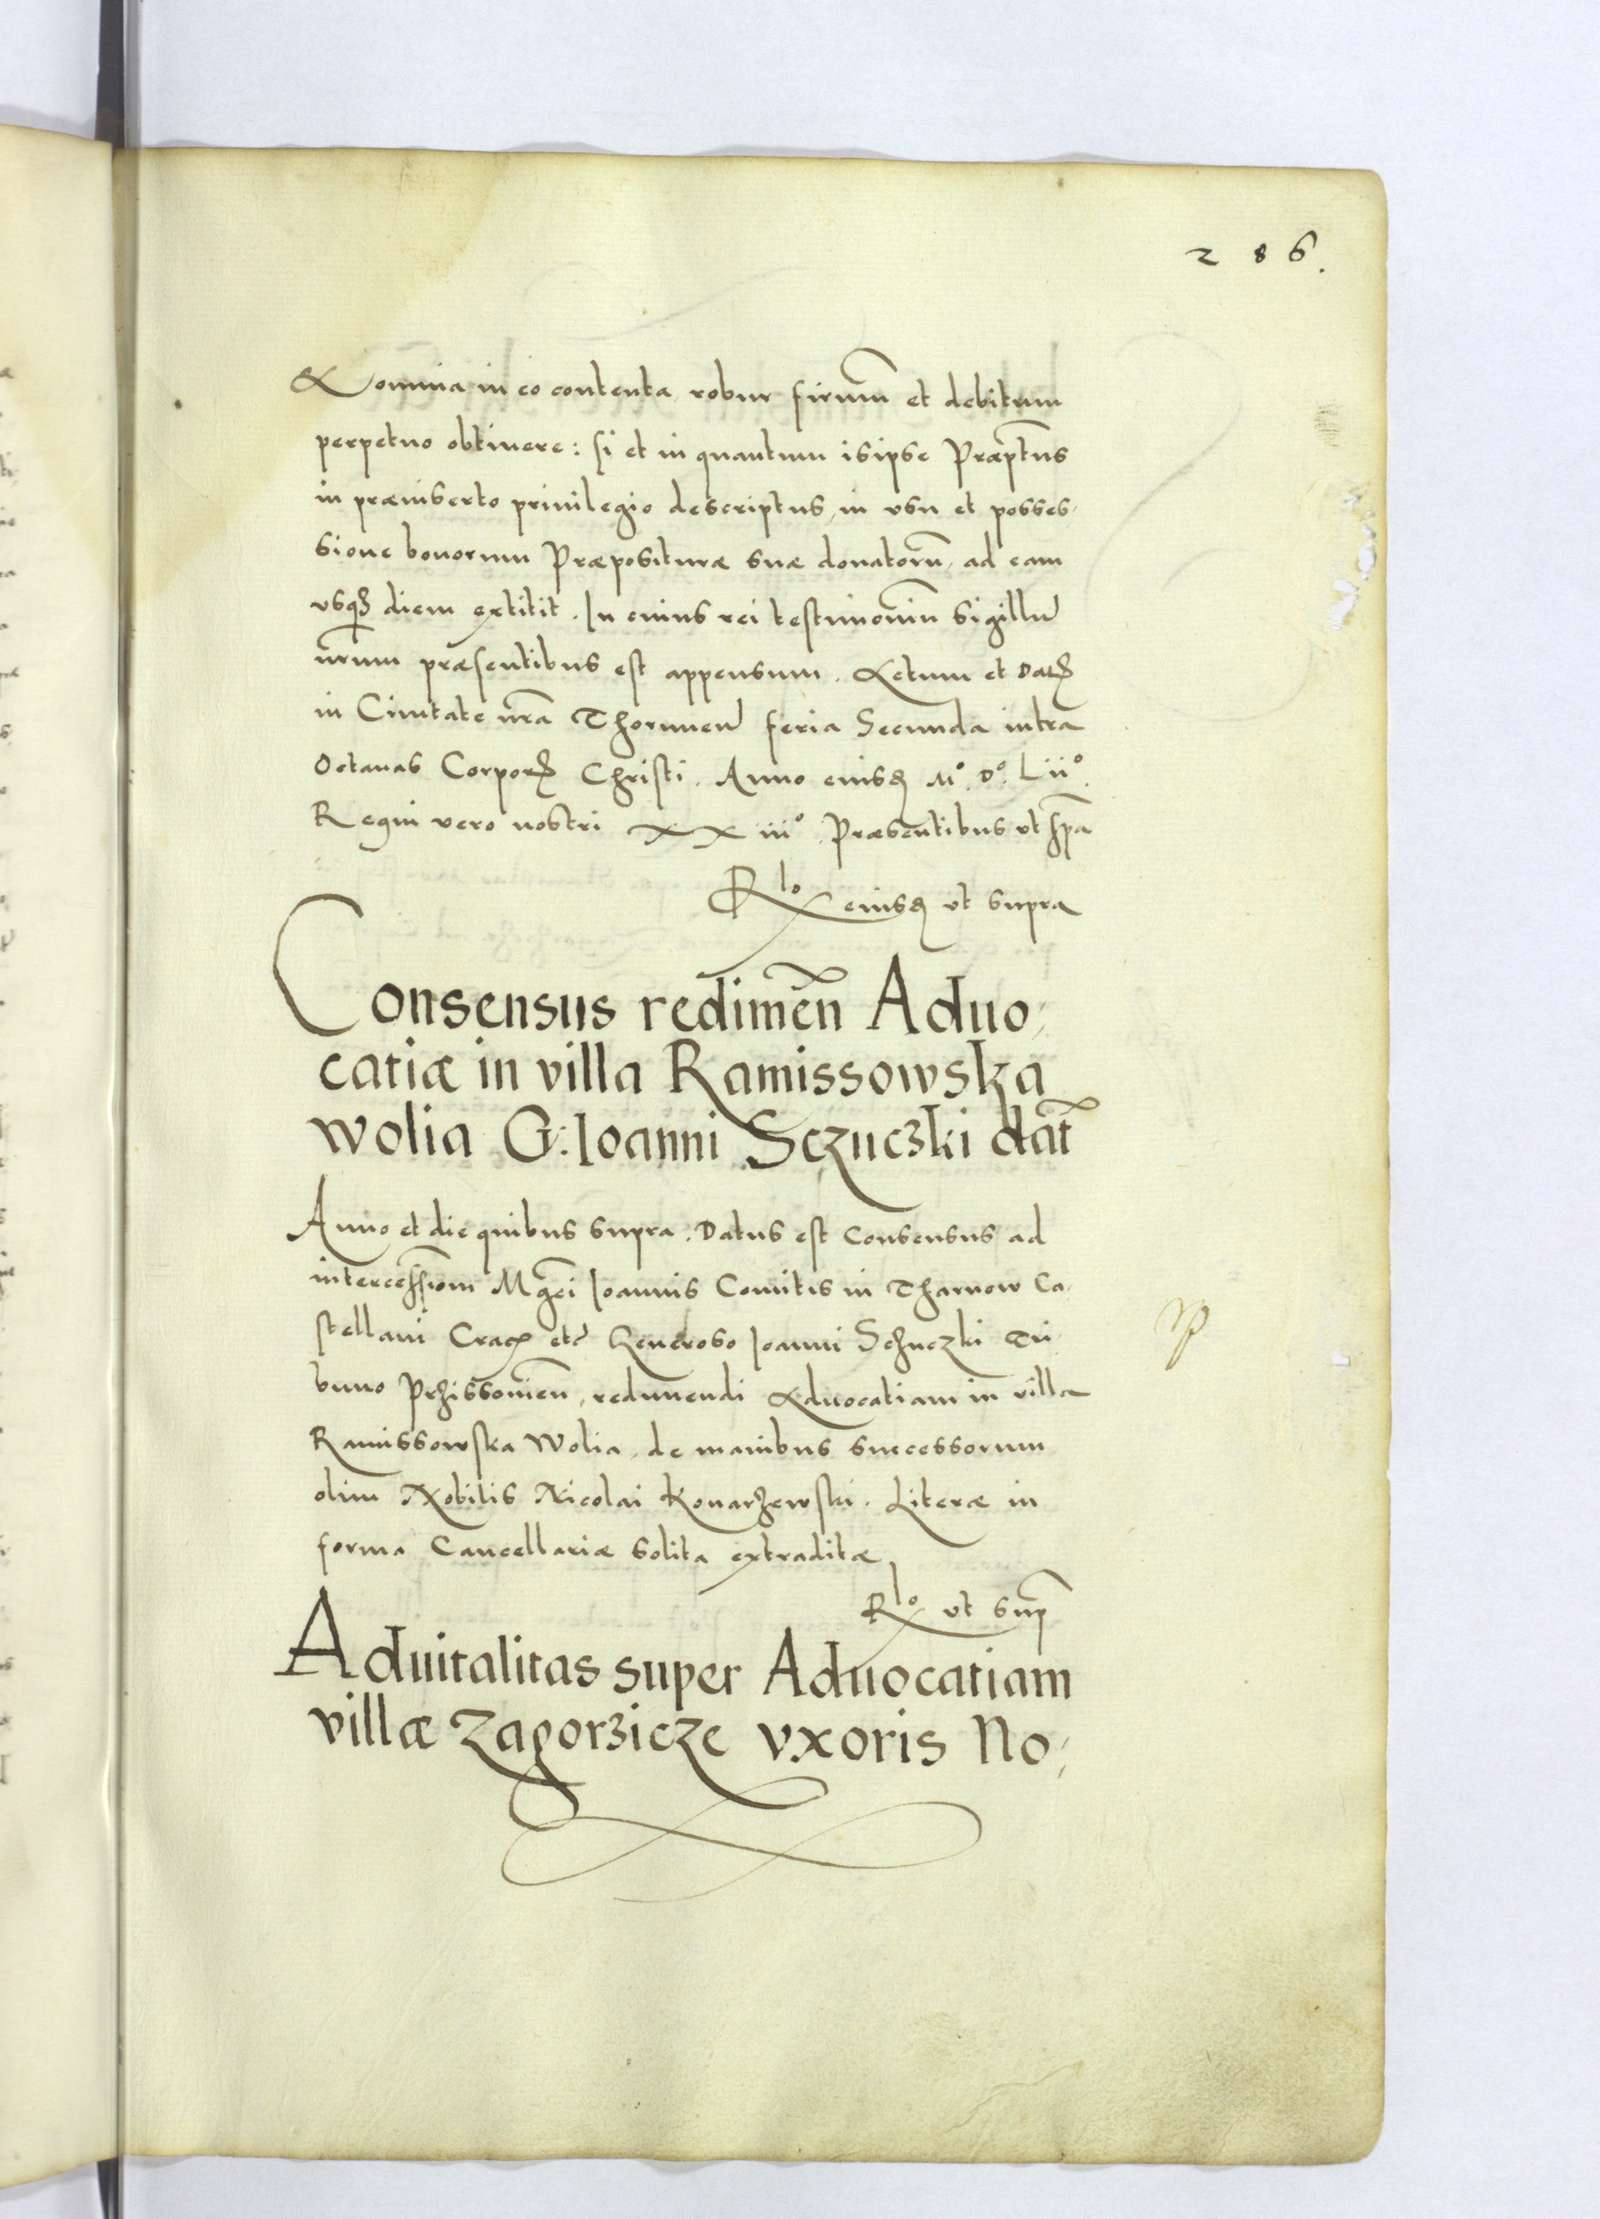 286.
& omnia in eo contenta robur firmũ et debitum
perpetuo obtinere: si et in quantum isipse Præpt̃us
in præinserto priuilegio descriptus, in vsu et posses-
sione bonorum Præposituræ suæ donatorũ, ad eam
vsqꝫ diem extitit. In cuius rei testimoniũ Sigillũ
nr̃um præsentibus est appensum. Actum et Datꝫ
in Ciuitate nr̃a Thorunen̄ feria Secunda intra
Octauas Corporꝫ Christi. Anno eiusꝫ M°. D°. Lii°.
Regni vero nostri XXiii°. Præsentibus vt spã
Rlo eiusꝫ vt supra
Consensus redimeñ Aduo-
catiæ in villa Ramissowska
wolia G. Ioanni Sczuczki dat̃
Anno et die quibus supra. Datus est Consensus ad
intercessiom̃ Mg̃ci Ioannis Comitis in Tharnow Ca-
stellani Crac̃ etc̃ Generoso Ioanni Sczuczki Tri-
buno Przissouieñ, redimendi Aduocatiam in villa
Ramissowska Wolia, de manibus successorum
olim Nobilis Nicolai Konarzewski. Literæ in
forma Cancellariæ solita extraditæ
Rlo vt sup̃
Aduitalitas super Aduocatiam
villæ Zagorzicze vxoris No-